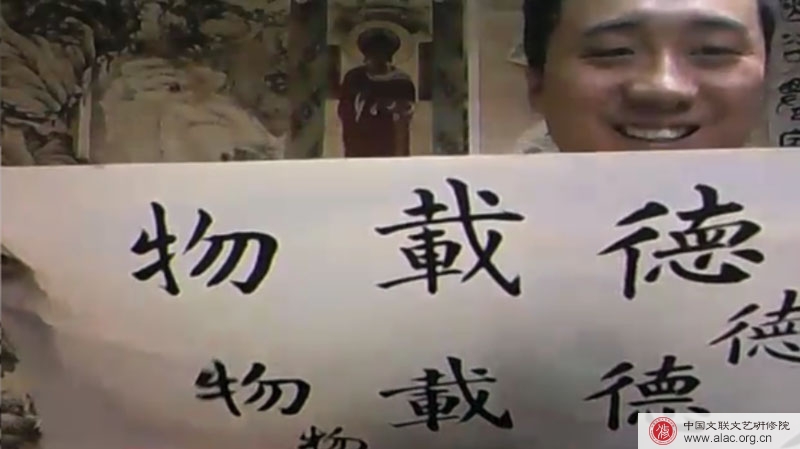 物 載 德
德
物 載 德
物
中国文联文艺研修院
www.alac.org.cn